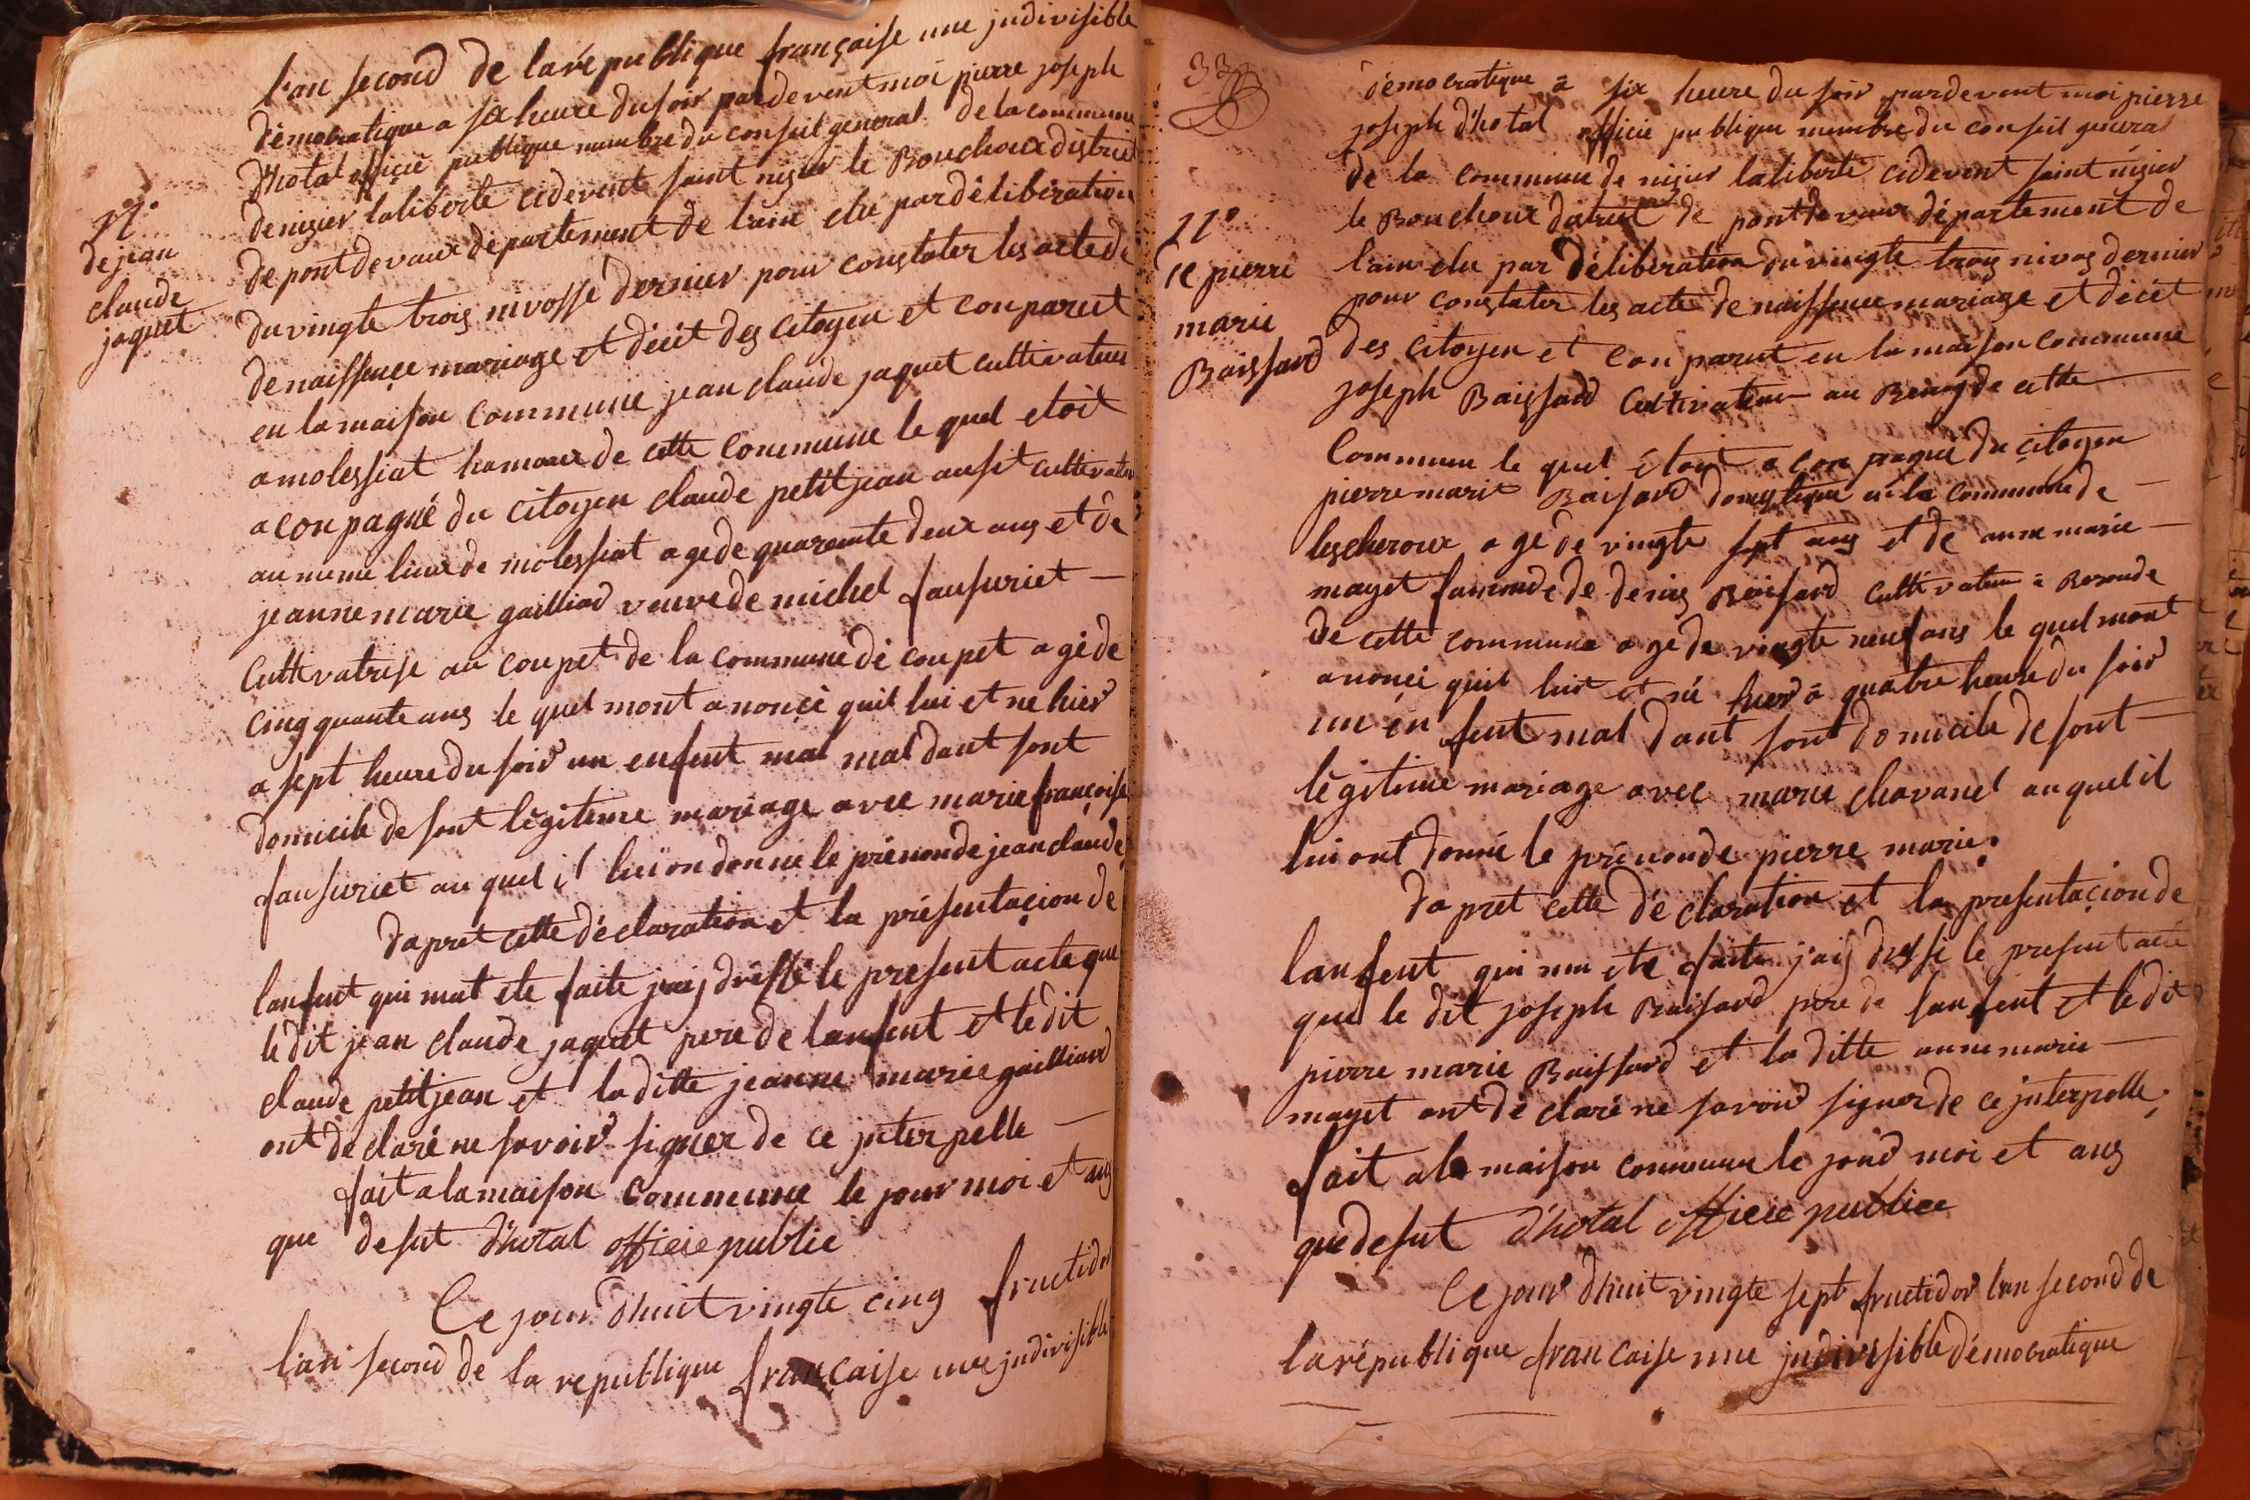 l'an second de la république française une jndivisible
démocratique a six heure du soir pardevent moi pierre joseph
d'hotal officié publique membre du conseil general de la commune
de nizier laliberte cidevent saint nizier le Bouchoux district
de pontdevaux département de lain elu par délibération
du vingte trois nivosse dernier pour constater les acte de
de naissence mariage et décét des citoyen et conparut
en la maison commune jean claude jaquet cultivateur
a molessiat hamaux de cette commune le quel etoit
a conpagné du citoyen claude petitjean ausit cultivateur
au meme lieux de molessiat agede quaremte deux ans et de
jeanne marie gailliard veuve de michel fausuriet —
cultivatrise au coupet de la commune de coupet a gé de
cinqquante ans le quel mont anoncé quil lui et ne hier
a sept heure du soir un enfent mal mal dant sont
domicile de sont légiteme mariage avec marie françoise
fausuriet au quel il lui on donne le prénon de jean claude
dapret cette déclaration et la présentaçion de
lanfent qui mat ete faite jaij dressé le present acte que
le dit jean claude jaquet pere de lanfent et le dit
claude petitjean et la ditte jeanne marie gailliard
ont declaré ne savoir signer de ce jnterpelle —
fait a la maison commune le jour moi et ans
que desut d'hotal officié public
Ce jour d'huit vingte cinq fructidor
l'an second de la republique française une jndivisible
de jean
claude
jaquet
33
démocratique a six heure du soir pardevent moi pierre
joseph d'hotal officié publique membre du conseil general
de la commune de nizier laliberté cidevent saint nizier
le Bouchoux district de pontdevaux département de
l'ain elu par délibération du vingte trois nivos dernier
pour constater les acte de naissence mariage et décét
des citoyen et conparut en la maison commune
joseph Baissard cultivateur au Benny de cette —
Commune le quel étoit a conpagné du citoyen
pierre marie Baisard domestique a la commune de —
lescheroux a gé de vingte sept ans et de anne marie —
mayet famme de denis Baisard cultivateur a
de cette commune a ge de vingte neuf ans le quel mont
anoncé quil luit et né hier a quatre heure du soir
un enfent mal dant sont domicile de sont —
légitime mariage avec marie chavanel au quel il
lui ont donné le prénon de pierre marie.
dapret cette déclaration et la presentaçion de
lanfent qui ma ete faite jaij dressé le present acte
que le dit joseph Baisard pere de lanfent et le dit
pierre marie Baissard et la ditte anne marie —
mayet ont déclaré ne savoir signer de ce jnterpelle.
fait a la maison commune le jour moi et ans
que desut d'hotal officié publice
Ce jour d'huit vingte sept fructidor lan second de
la république française une jndivisible démocratique
11°
de pierre
marie
Baissard